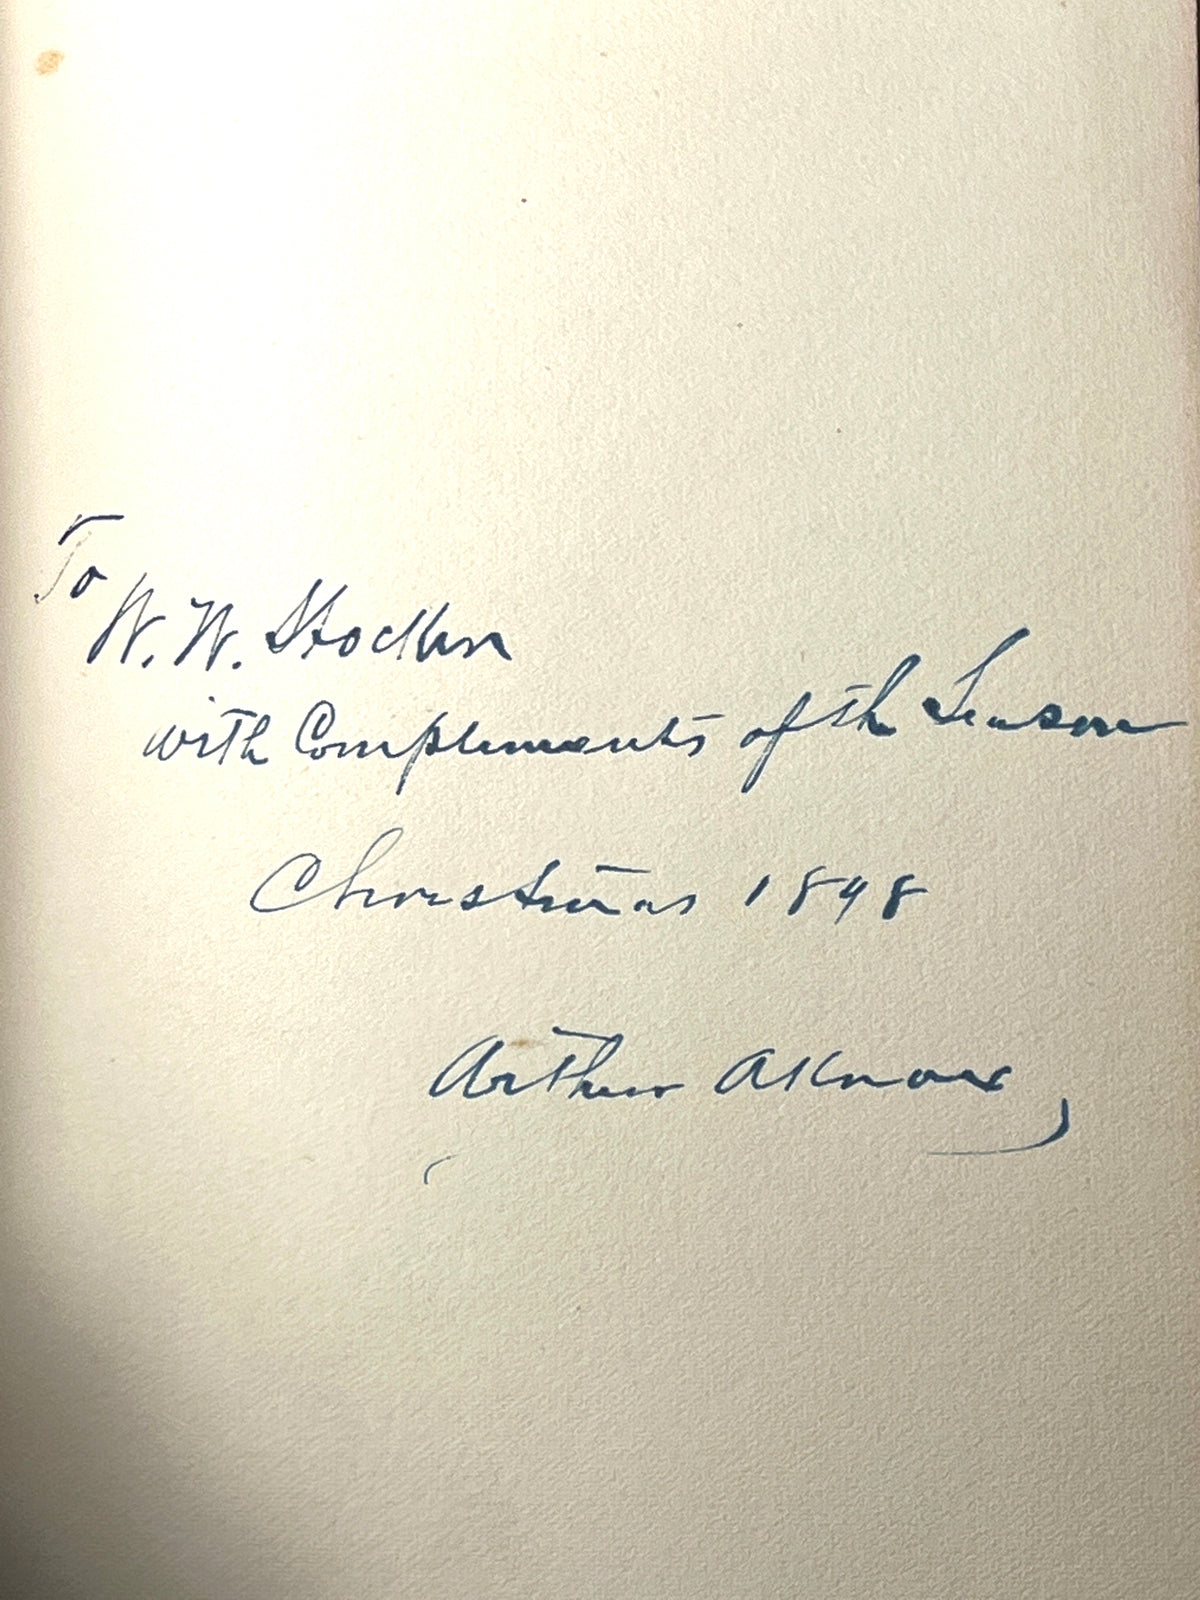 To
W. W. Stocken
with Complements of the Season
Christmas 1898
Arthur A Knox